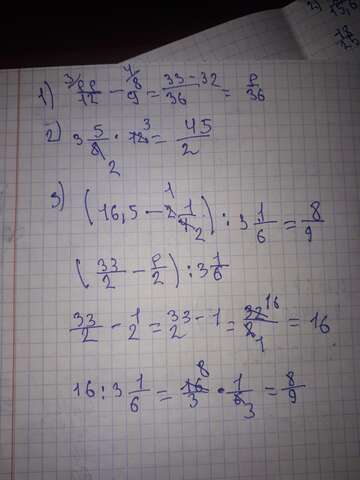 1) 3/ 11/12 - 4/ 8/9 = 33-32/36 = 1/36
2) 3 5/8 2 · 12 3 = 45/2
3) (16,5 - 2 1 1/4 2) : 3 1/6 = 8/9
(33/2 - 1/2) : 3 1/6
33/2 - 1/2 = 33-1/2 = 32 16/2 1 = 16
16 : 3 1/6 = 16 8/3 · 1/6 3 = 8/9